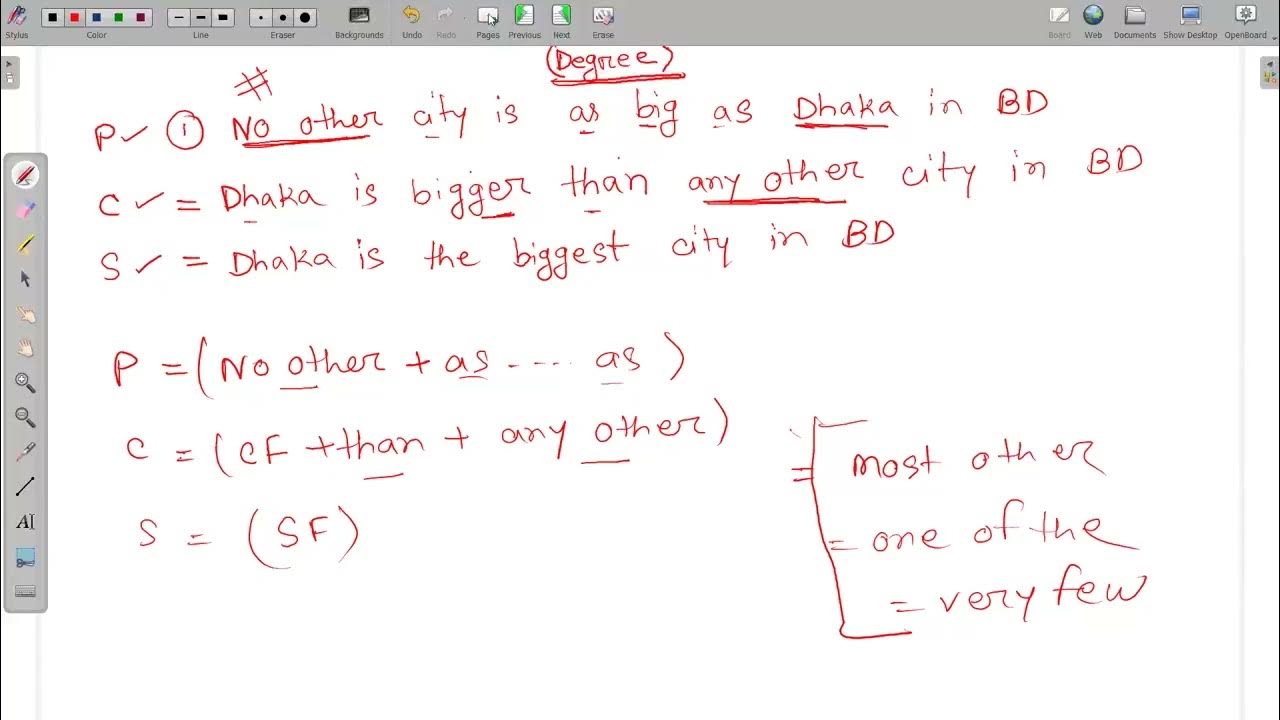 Stylus Color Line Eraser Backgrounds Undo Redo Pages Previous Next Erase Board Web Documents Show Desktop OpenBoard
(Degree)
#
P ✓ ① No other city is as big as Dhaka in BD
C ✓ = Dhaka is bigger than any other city in BD
S ✓ = Dhaka is the biggest city in BD
P = (No other + as .... as)
C = (CF + than + any other)
S = (SF)
= most other
= one of the
= very few
AI